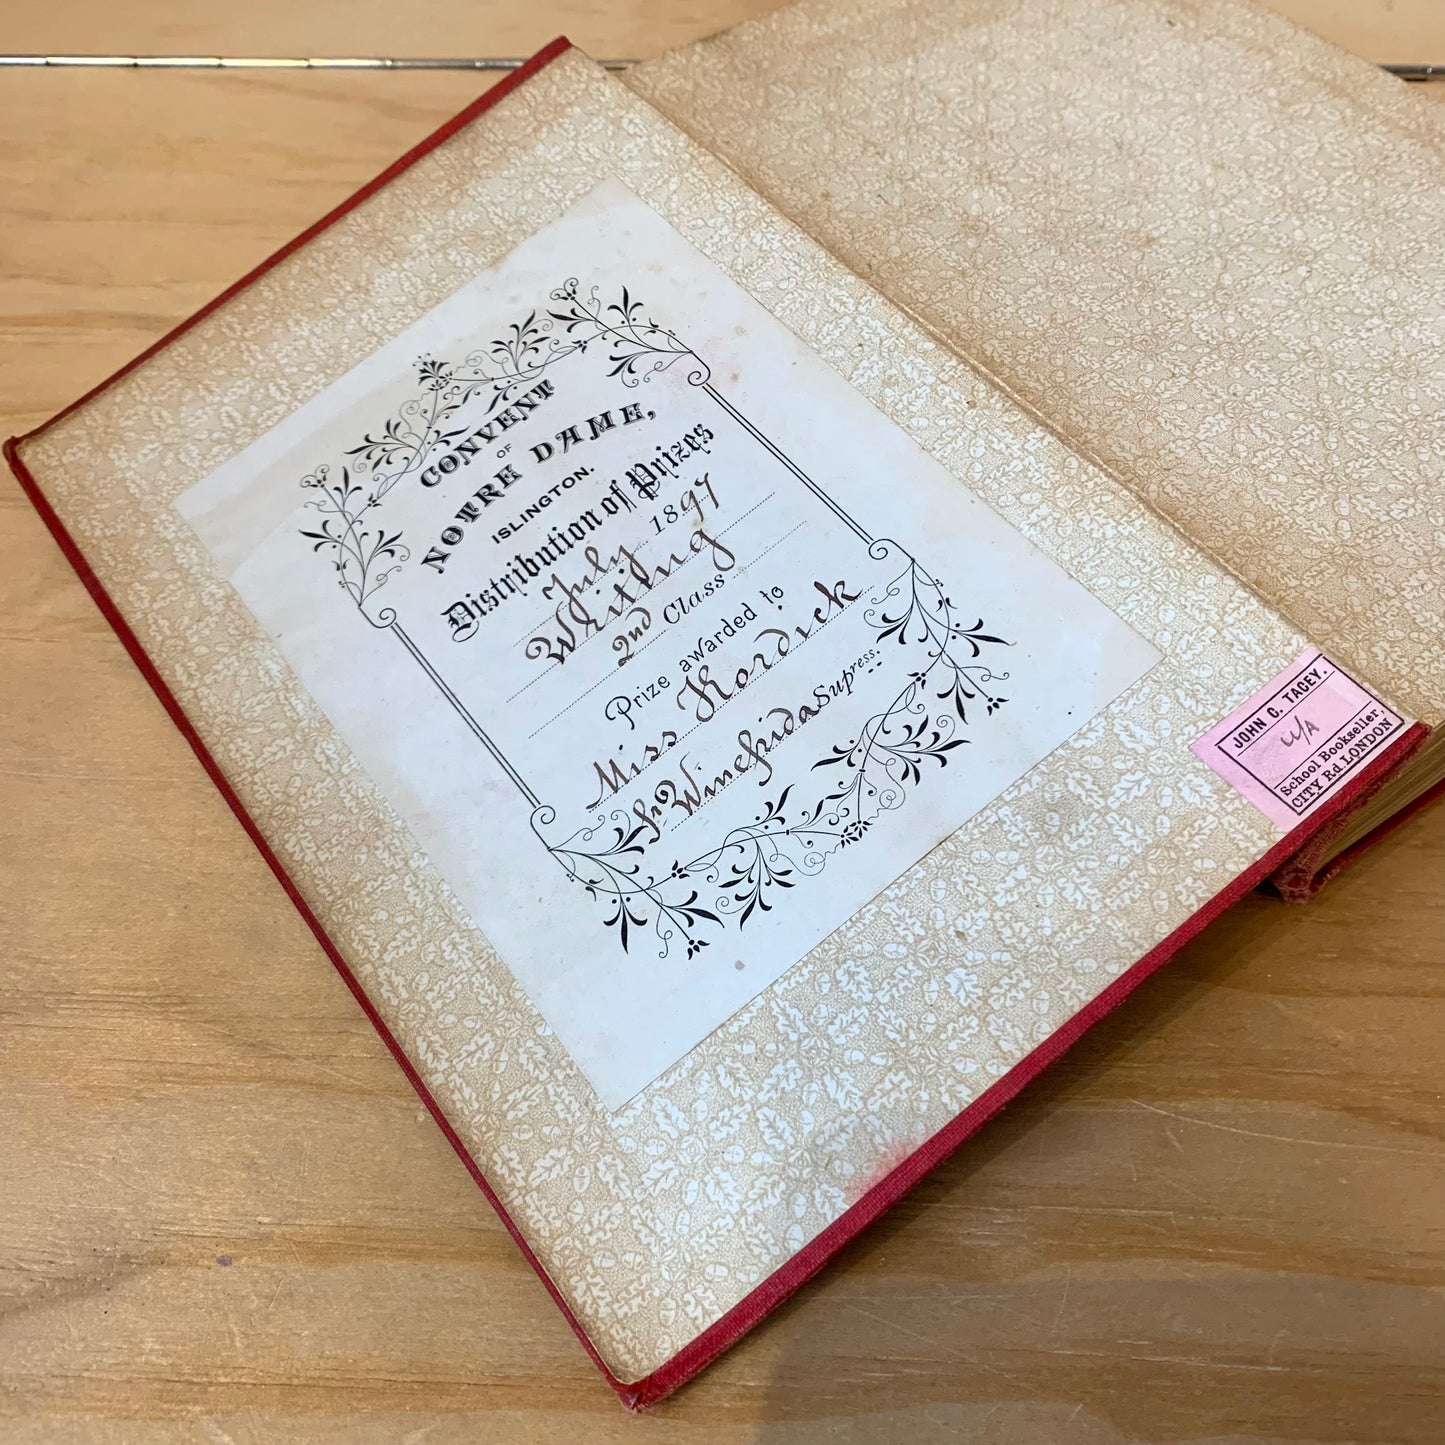 CONVENT
OF
NOTRE DAME,
ISLINGTON.
Distribution of Prizes
July 1897
Writing
2nd Class
Prize awarded to
Miss Kordick
Sr Winefrida Supress.
JOHN C. TACEY.
w/A
School Bookseller,
CITY Rd. LONDON